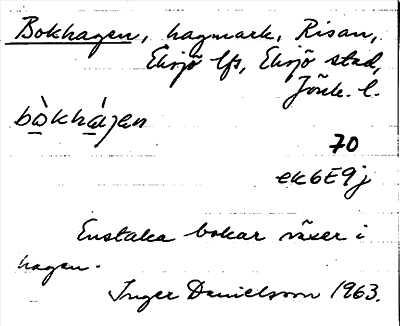 Bokhagen, hagmark, Risan,
Eksjö lfs, Eksjö stad,
Jönk. l.
bòkhágen
70
ek6E9j
Enstaka bokar växer i
hagen.
Inger Danielsson 1963.